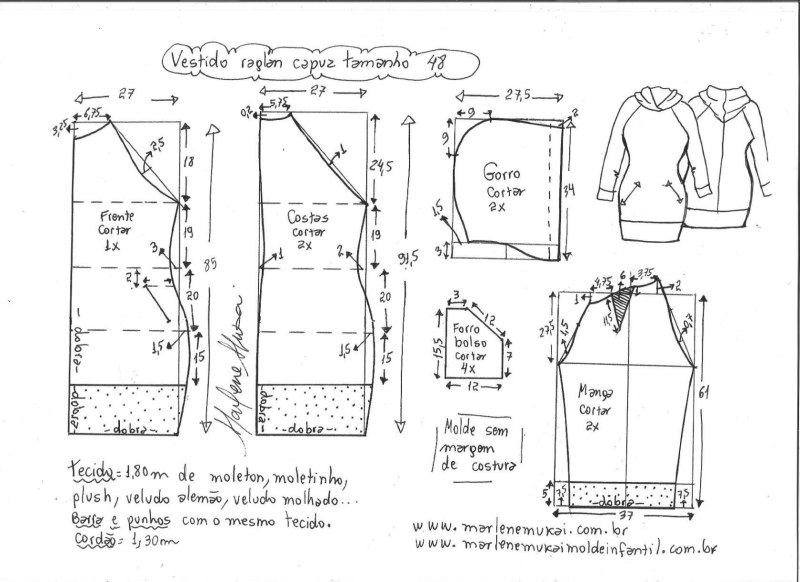 Vestido raglan capuz tamanho 48
27
6,75
3,25
2,5
18
Frente
cortar
1x
19
3
2
20
1,5
15
85
-dobra-
dobra
-dobra-
27
5,75
1
24,5
Costas
cortar
2x
19
1
2
20
1,5
15
91,5
-dobra-
Marlene Mukai
27,5
9
2
9
Gorro
cortar
2x
34
1,5
3
3
12
Forro
bolso
cortar
4x
15,5
7
12
4,75
6
3,75
1
2
27,5
Manga
cortar
2x
61
5
7,5
7,5
dobra
37
Molde sem
margem
de costura
Tecido= 1,80m de moleton, moletinho,
plush, veludo alemão, veludo molhado...
Barra e punhos com o mesmo tecido.
Cordão= 1,30m
www.marlenemukai.com.br
www.marlenemukaimoldeinfantil.com.br